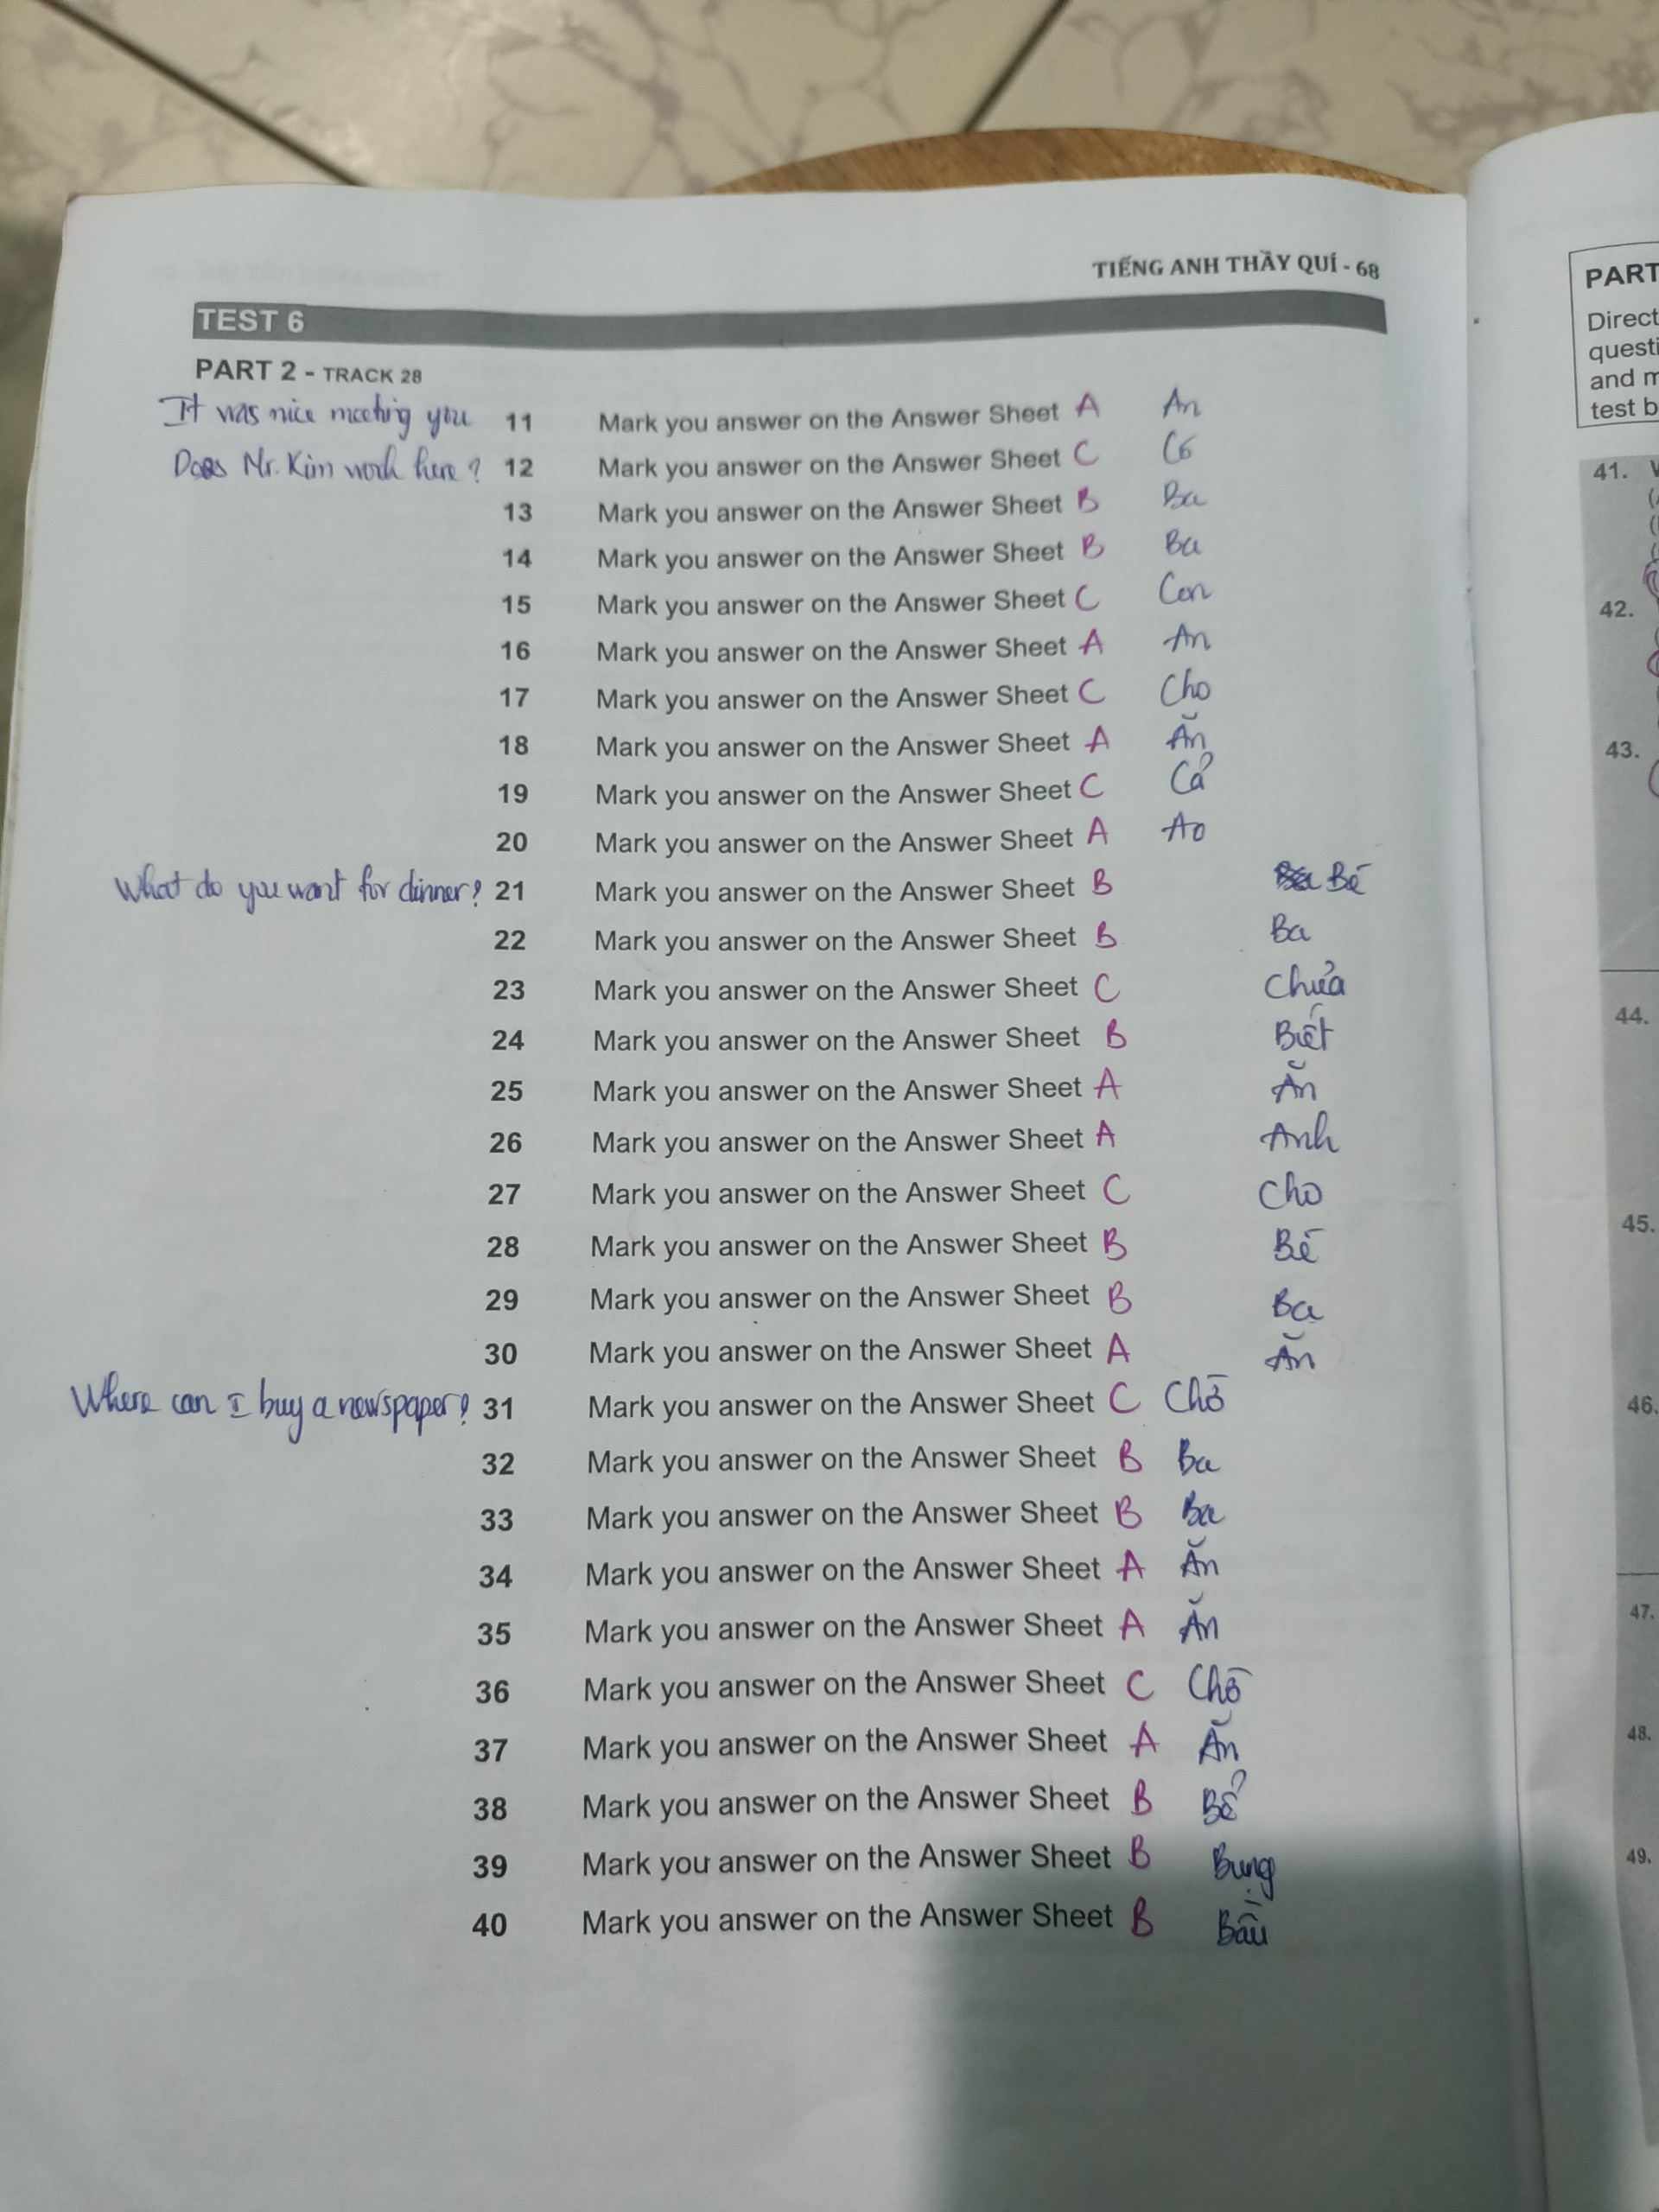 TIẾNG ANH THẦY QUÍ - 68
TEST 6
PART 2 - TRACK 28
It was nice meeting you 11 Mark you answer on the Answer Sheet A An
Does Mr. Kim work here? 12 Mark you answer on the Answer Sheet C Cô
13 Mark you answer on the Answer Sheet B Ba
14 Mark you answer on the Answer Sheet B Ba
15 Mark you answer on the Answer Sheet C Con
16 Mark you answer on the Answer Sheet A An
17 Mark you answer on the Answer Sheet C Cho
18 Mark you answer on the Answer Sheet A Ăn
19 Mark you answer on the Answer Sheet C Cả
20 Mark you answer on the Answer Sheet A Ao
What do you want for dinner? 21 Mark you answer on the Answer Sheet B Bé
22 Mark you answer on the Answer Sheet B Ba
23 Mark you answer on the Answer Sheet C Chưa
24 Mark you answer on the Answer Sheet B Biết
25 Mark you answer on the Answer Sheet A Ăn
26 Mark you answer on the Answer Sheet A Anh
27 Mark you answer on the Answer Sheet C Cho
28 Mark you answer on the Answer Sheet B Bé
29 Mark you answer on the Answer Sheet B Ba
30 Mark you answer on the Answer Sheet A Ăn
Where can I buy a newspaper? 31 Mark you answer on the Answer Sheet C Chờ
32 Mark you answer on the Answer Sheet B Ba
33 Mark you answer on the Answer Sheet B Ba
34 Mark you answer on the Answer Sheet A Ăn
35 Mark you answer on the Answer Sheet A Ăn
36 Mark you answer on the Answer Sheet C Chờ
37 Mark you answer on the Answer Sheet A Ăn
38 Mark you answer on the Answer Sheet B Bể
39 Mark you answer on the Answer Sheet B Bụng
40 Mark you answer on the Answer Sheet B Bầu
PART
Direct
questi
and m
test b
41.
42.
43.
44.
45.
46.
47.
48.
49.